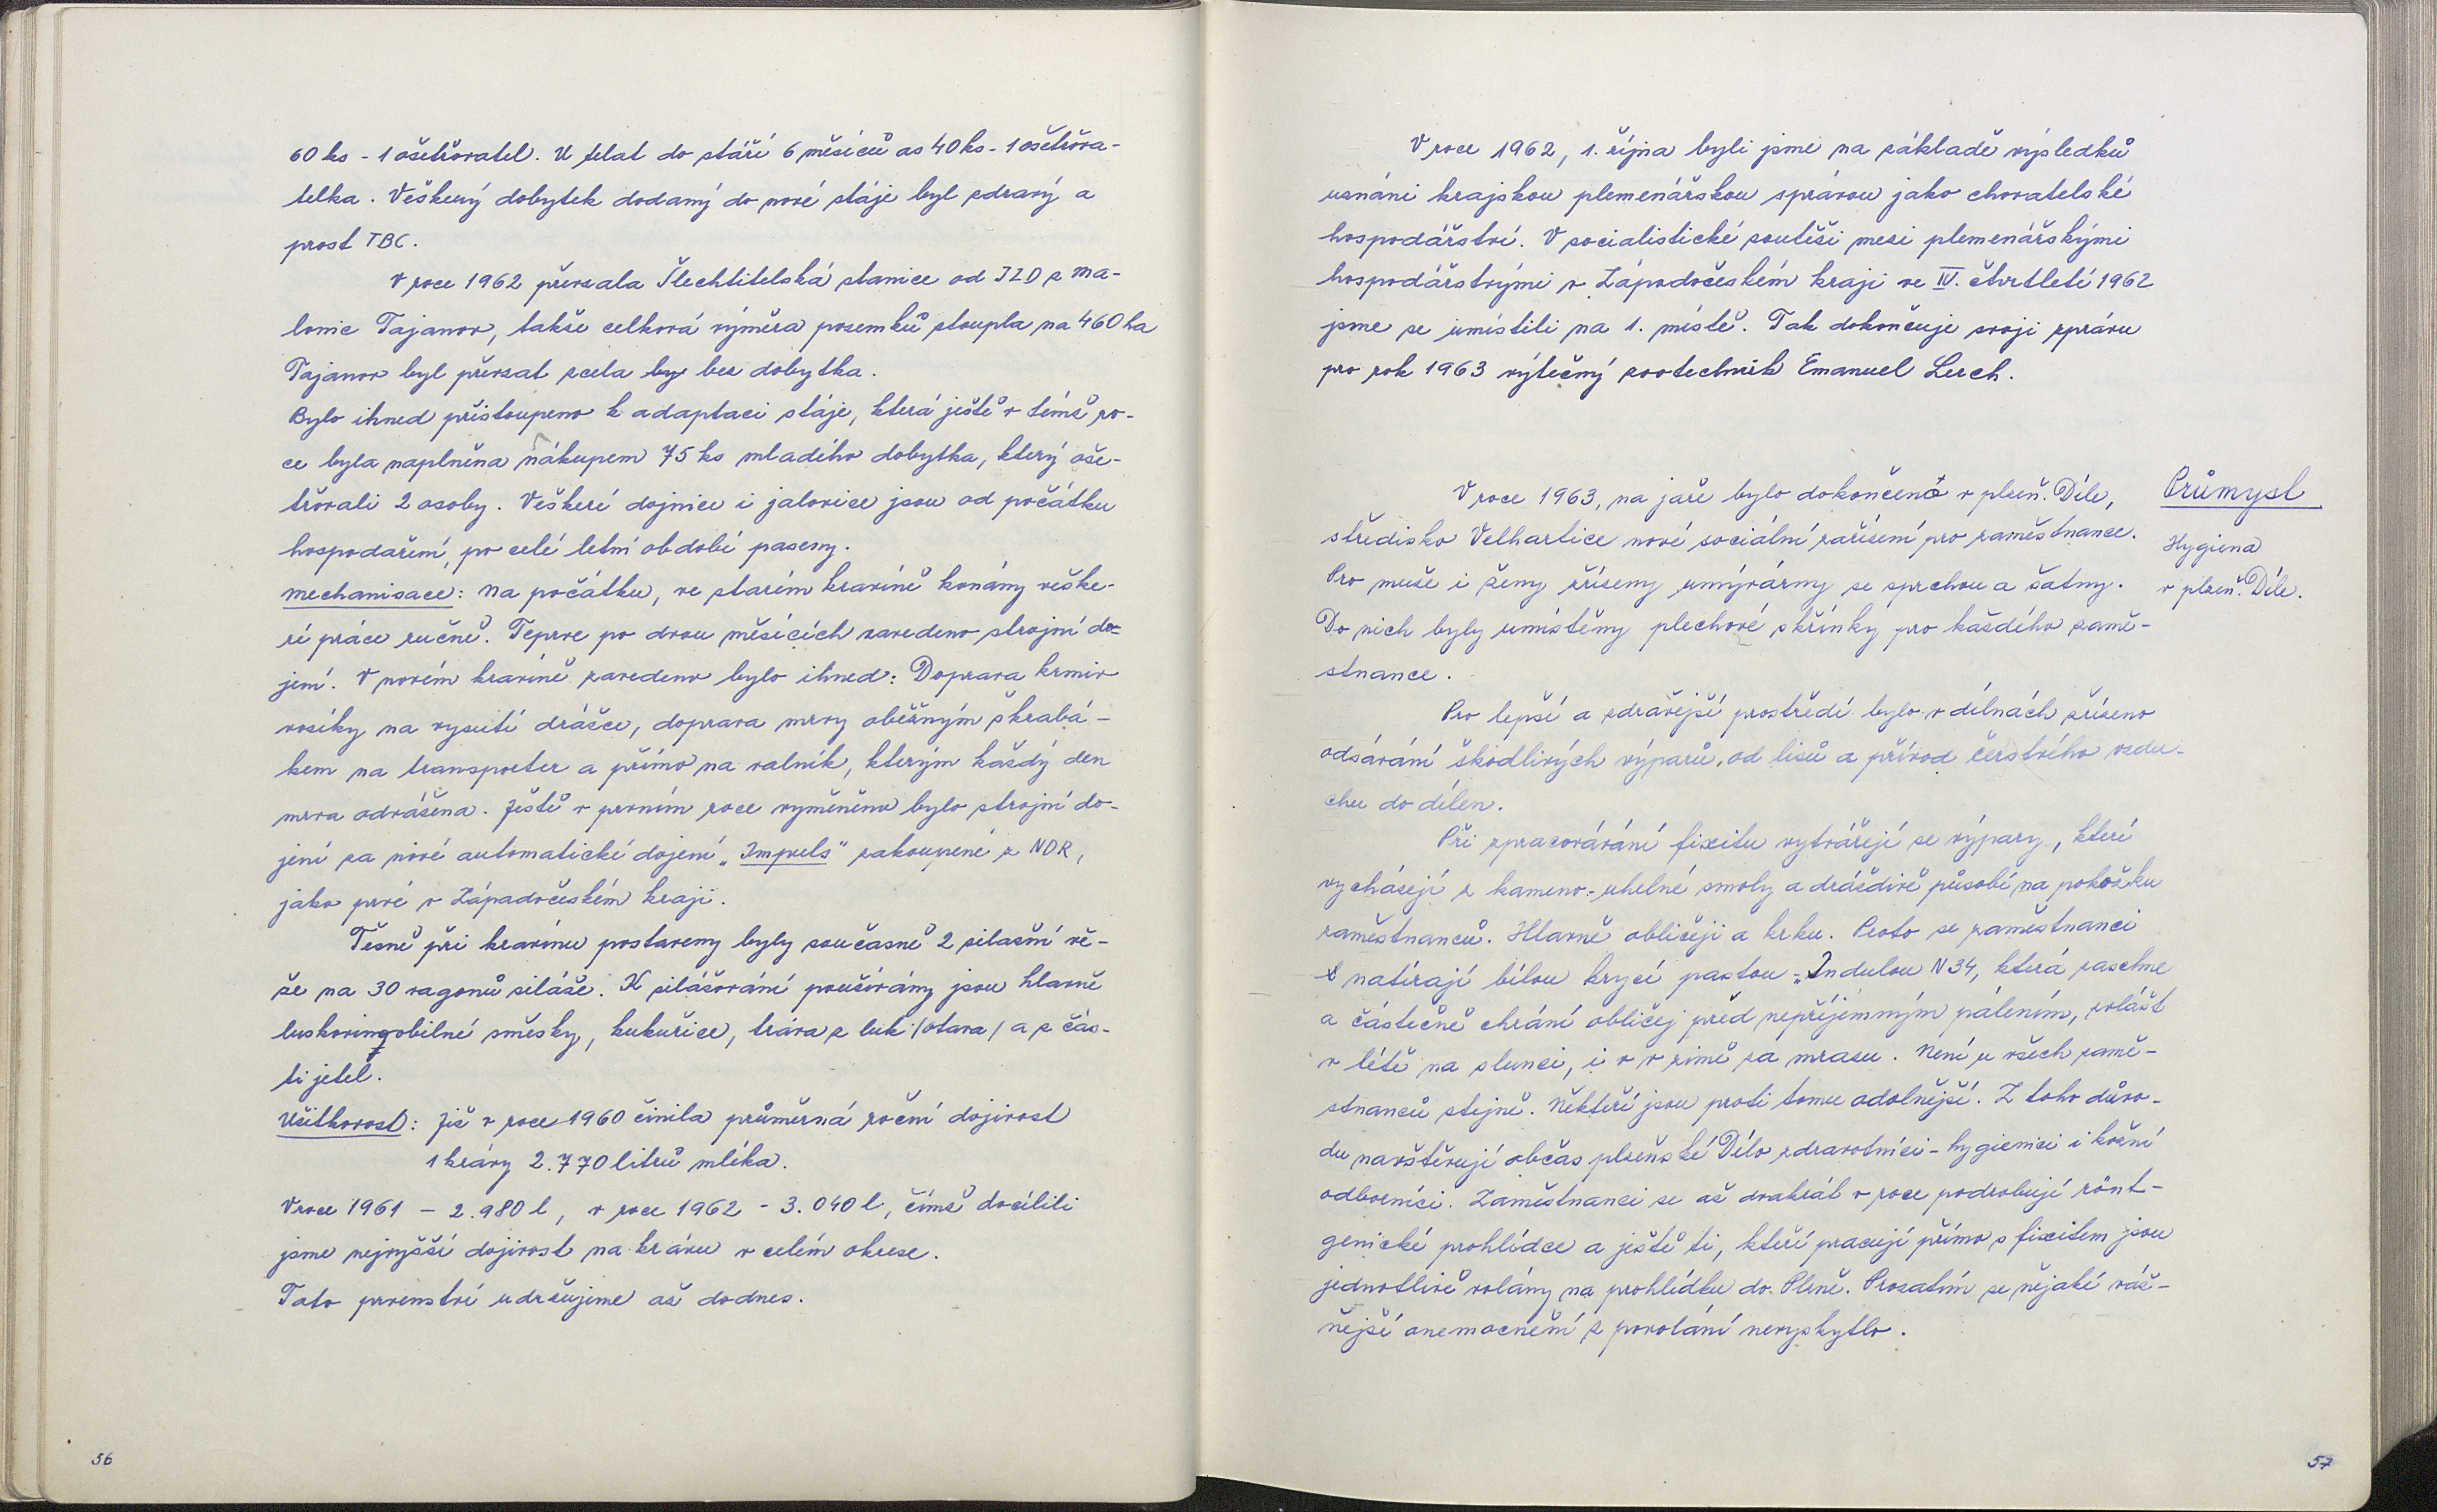 60 ks - 1 ošetřovatel. U telat do stáří 6 měsíců as 40 ks - 1 ošetřova-
telka. Veškerý dobytek dodaný do nové stáje byl zdravý a
prost TBC.
V roce 1962 převzala Šlechtitelská stanice od JZD z Ma-
lonic Tajanov, takže celková výměra pozemků stoupla na 460 ha
Tajanov byl převzat zcela by bez dobytka.
Bylo ihned přistoupeno k adaptaci stáje, která ještě v témž ro-
ce byla naplněna nákupem 75 ks mladého dobytka, který oše-
třovali 2 osoby. Veškeré dojnice i jalovice jsou od počátku
hospodaření, po celé letní období paseny.
Mechanisace: Na počátku, ve starém kravíně konány veške-
ré práce ručně. Teprve po dvou měsících zavedeno strojní do-
jení. V novém kravíně zavedeno bylo ihned: Doprava krmiv
vozíky na vysuté drážce, doprava mrvy oběžným škrabá-
kem na transporter a přímo na valník, kterým každý den
mrva odvážena. Ještě v prvním roce vyměněno bylo strojní do-
jení za nové automatické dojení „Impuls" zakoupené z NDR,
jako prvé v Západočeském kraji.
Těsně při kravínu postaveny byly současně 2 silažní vě-
že na 30 vagonů siláže. K silážování používány jsou hlavně
luskovinoobilné směsky, kukuřice, tráva z luk /otava/ a z čás-
ti jetel.
Užitkovost: Již v roce 1960 činila průměrná roční dojivost
1 krávy 2.770 litrů mléka.
V roce 1961 - 2.980 l, v roce 1962 - 3.040 l, čímž docílili
jsme nejvyšší dojivost na krávu v celém okrese.
Toto prvenství udržujeme až dodnes.
56
V roce 1962, 1. října byli jsme na základě výsledků
uznáni krajskou plemenářskou správou jako chovatelské
hospodářství. V socialistické soutěži mezi plemenářskými
hospodářstvými v Západočeském kraji ve IV. čtvrtletí 1962
jsme se umístili na 1. místě. Tak dokončuje svoji zprávu
pro rok 1963 výtečný zootechnik Emanuel Lerch.
V roce 1963, na jaře bylo dokončeno v plzeň. Díle,
středisko Velhartice nové sociální zařízení pro zaměstnance.
Pro muže i ženy zřízeny umývárny se sprchou a šatny.
Do nich byly umístěny plechové skřínky pro každého zamě-
stnance.
Průmysl
Hygiena
v plzeň. Díle.
Pro lepší a zdravější prostředí bylo v dílnách zřízeno
odsávání škodlivých výparů, od lisů a přívod čerstvého vzdu-
chu do dílen.
Při zpracovávání fixitu vytvářejí se výpary, které
vycházejí z kameno-uhelné smoly a dráždivě působí na pokožku
zaměstnanců. Hlavně obličeji a krku. Proto se zaměstnanci
natírají bílou krycí pastou „Indulou N34, která zaschne
a částečně chrání obličej před nepříjemným pálením, zvlášť
v létě na slunci, i v v zimě za mrazu. Není u všech zamě-
stnanců stejné. Někteří jsou proti tomu odolnější. Z toho důvo-
du navštěvují občas plzeňské Dílo zdravotníci - hygienici i kožní
odborníci. Zaměstnanci se až dvakrát v roce podrobují rönt-
genické prohlídce a ještě ti, kteří pracují přímo s fixitem jsou
jednotlivě voláni na prohlídku do Plzně. Prozatím se nějaké váž-
nější onemocnění z povolání nevyskytlo.
57